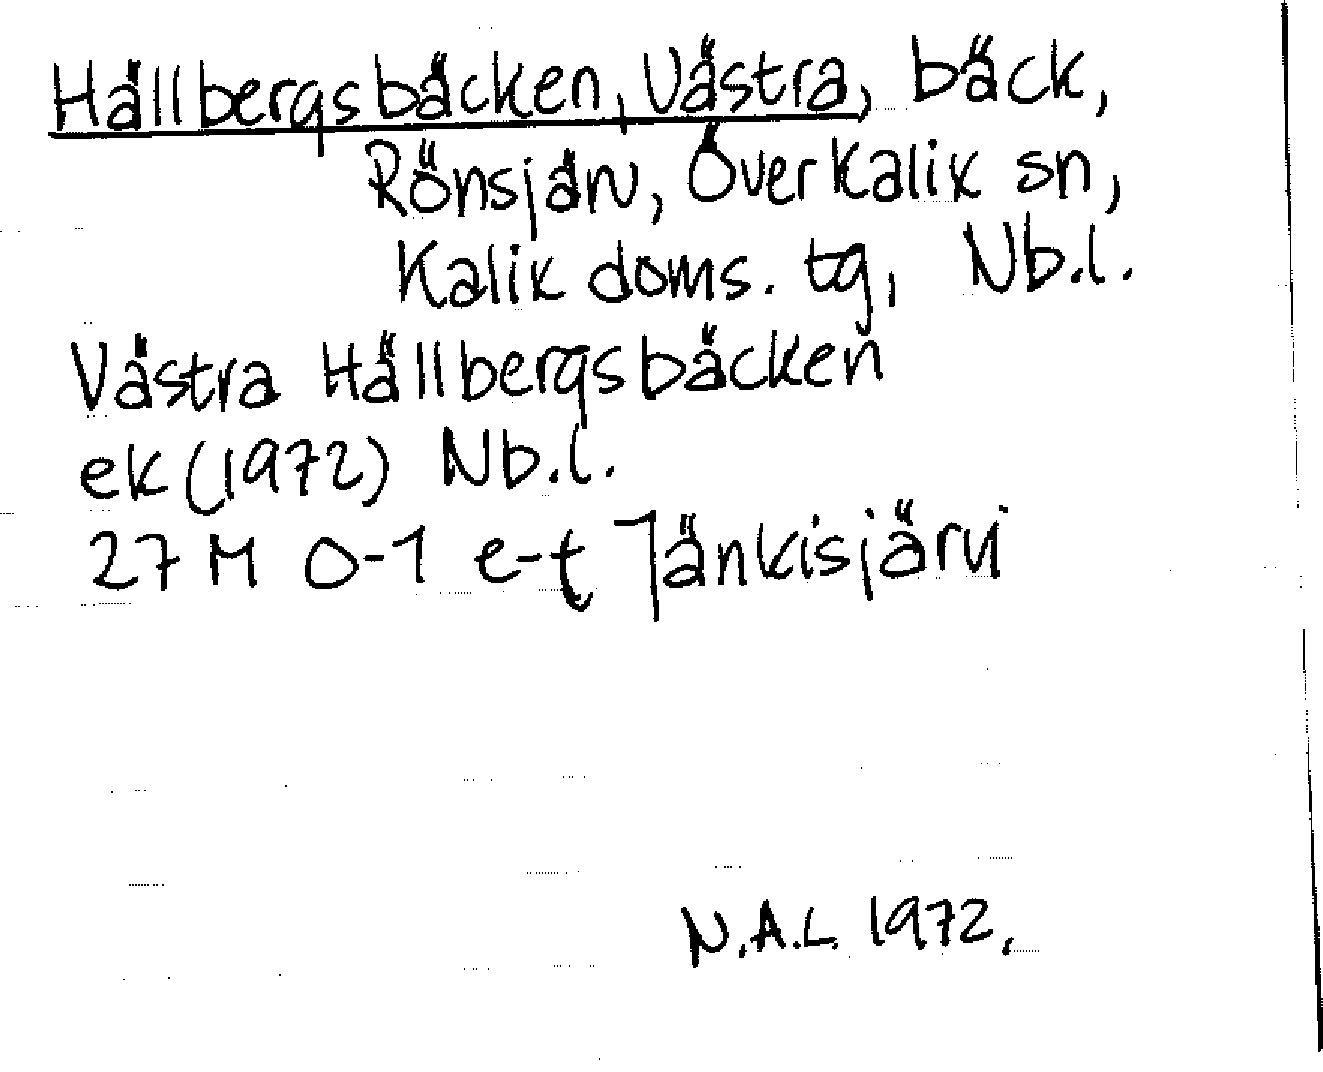 Hällbergsbäcken, Västra, bäck,
Rönsjärv, Överkalix sn,
Kalix doms. tg, Nb.l.
Västra Hällbergsbäcken
ek (1972) Nb.l.
27 M 0-1 e-f Jänkisjärvi
N.A.L. 1972.